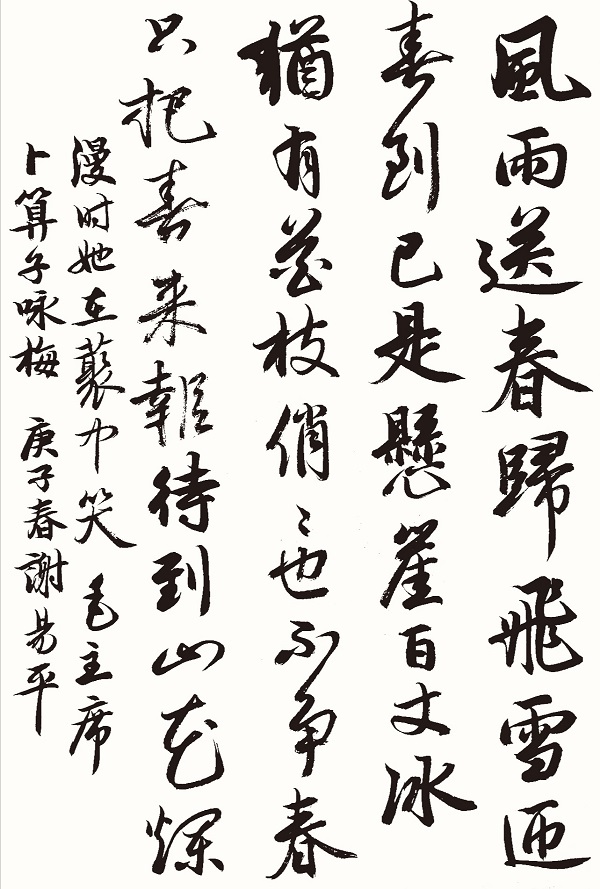 風雨送春歸飛雪迎
春到已是懸崖百丈冰
猶有花枝俏〻也不争春
只把春来報待到山花爛
漫时她在藂中笑 毛主席
卜算子咏梅 庚子春謝易平